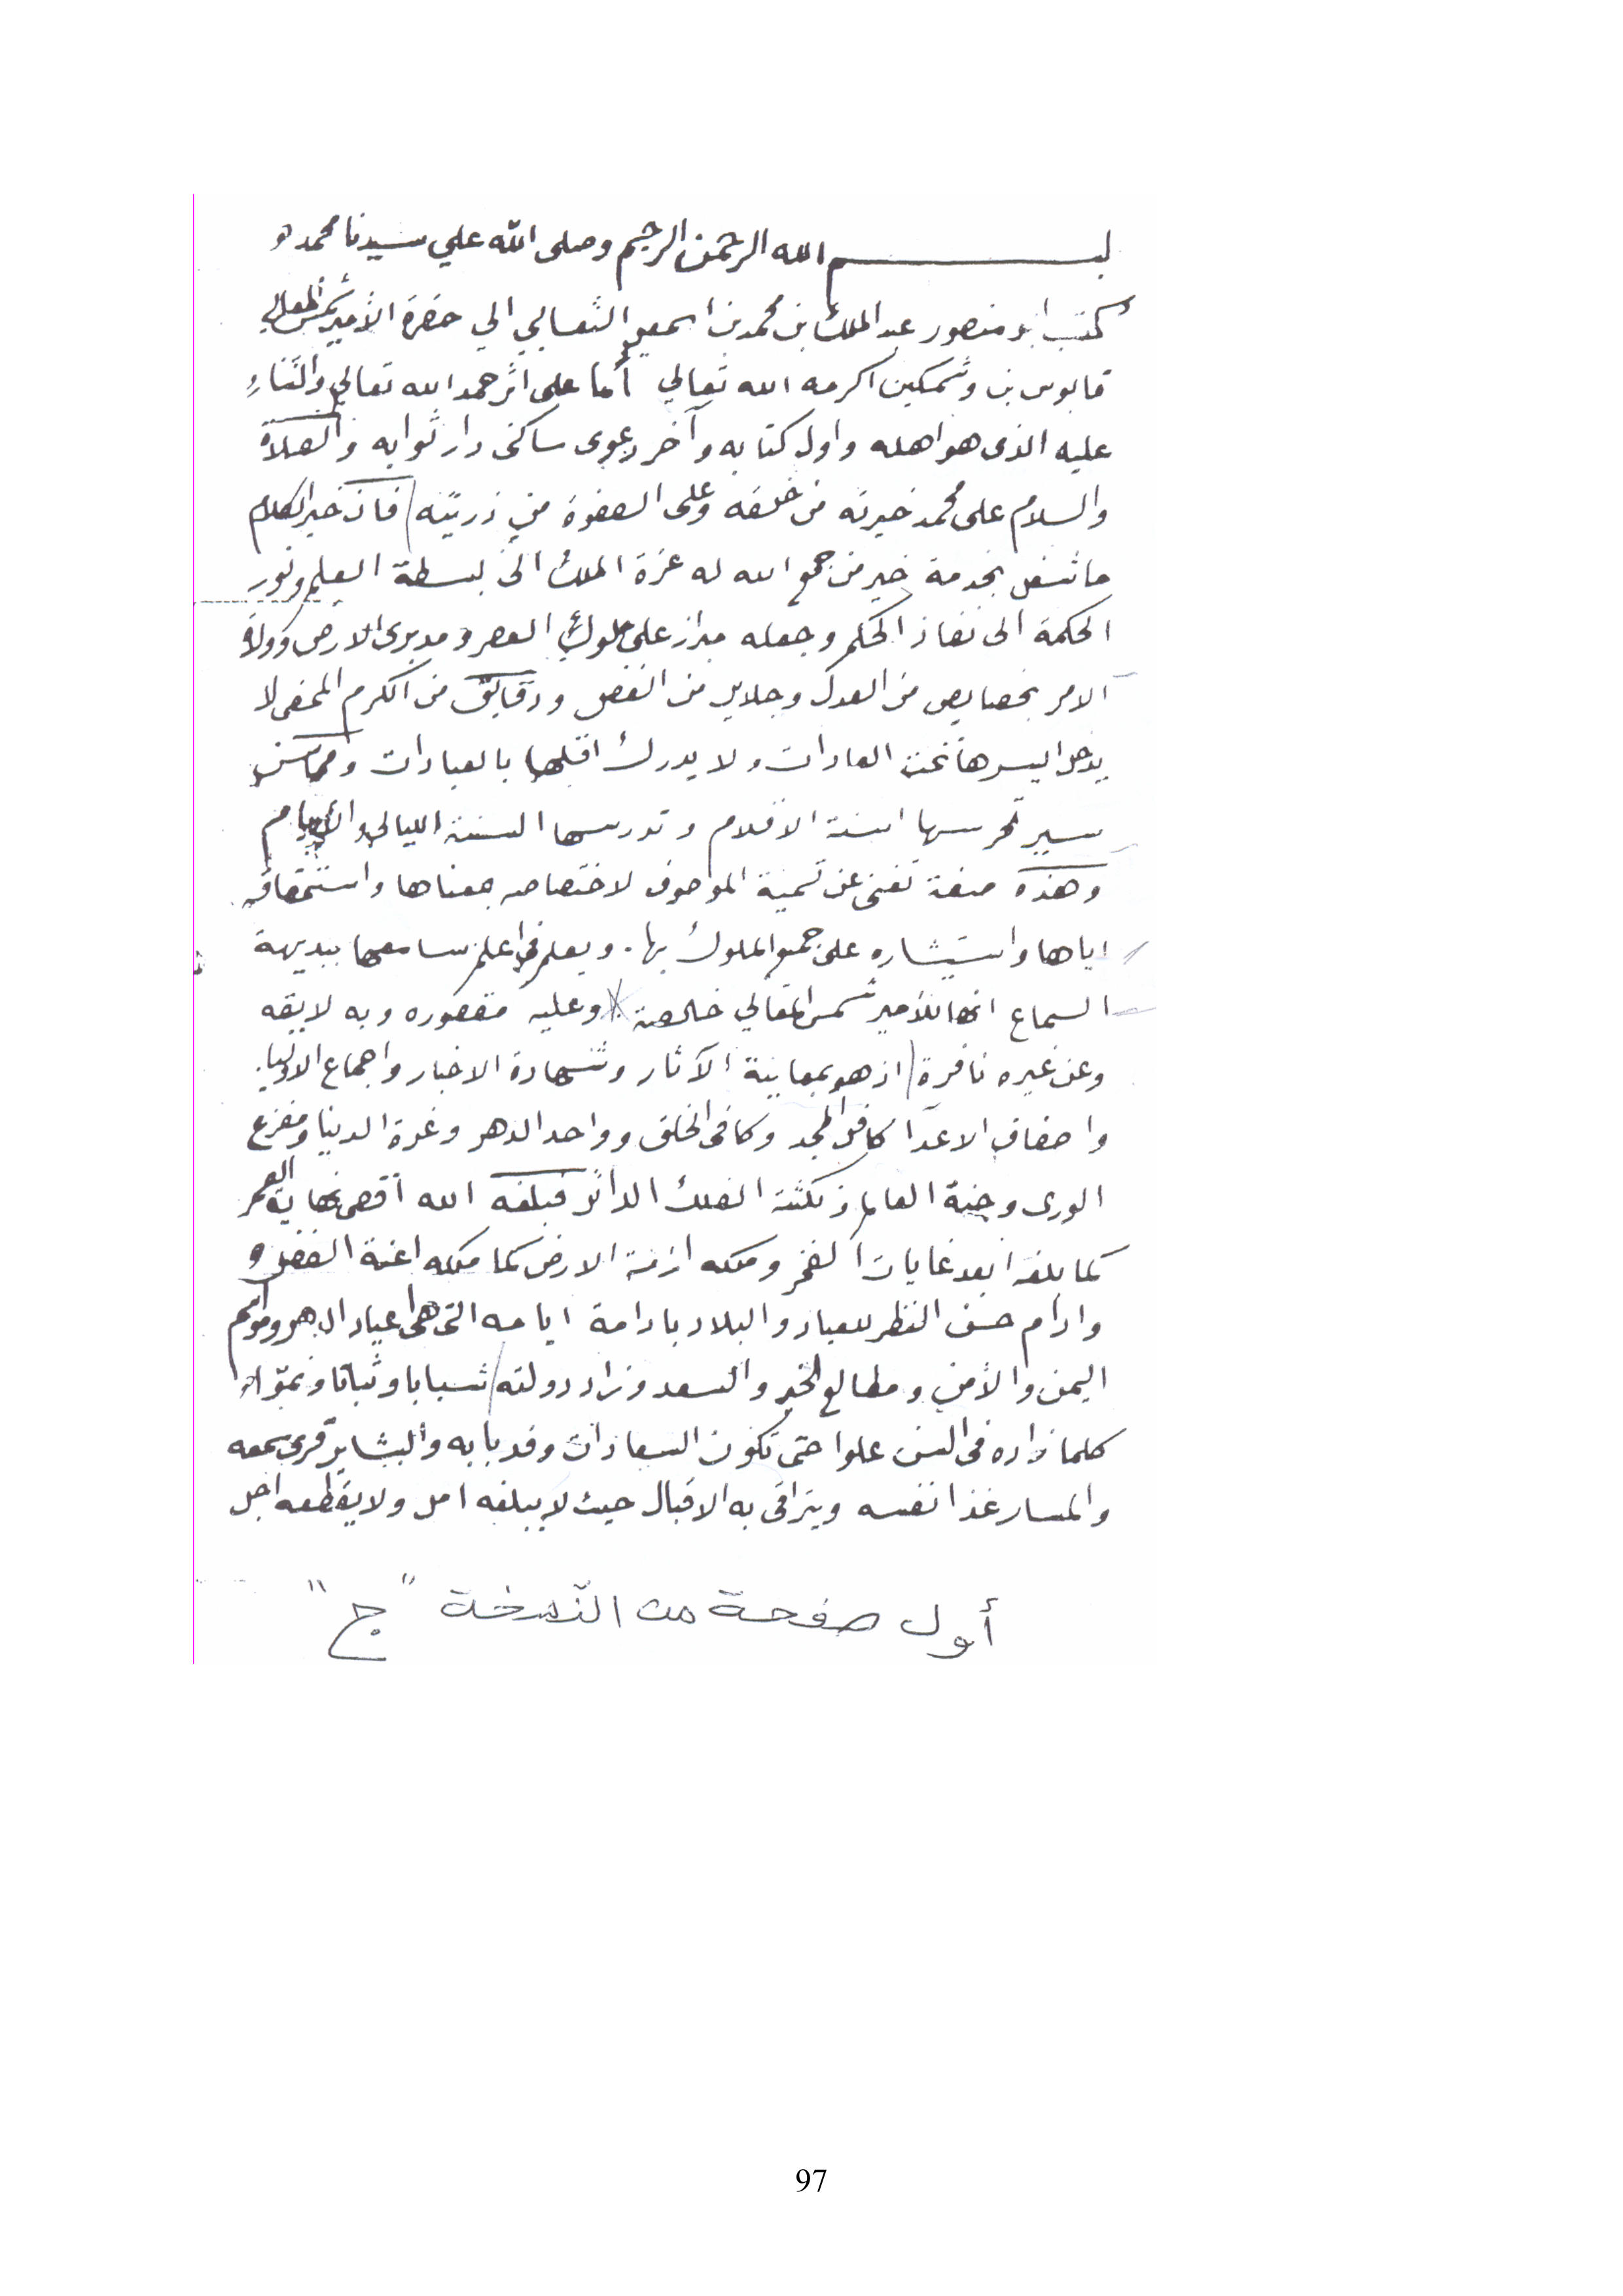 بسم الله الرحمن الرحيم وصلى الله علي سيدنا محمد
كتب ابو منصور عبد الملك بن محمد بن اسمعيل الثعالبي الي حضرة الأمير شمس المعالي
قابوس بن وشمكين اكرمه الله تعالي أما على اثر حمد الله تعالي والثناء
عليه الذى هو اهله واول كتابه وآخر دعوى ساكنى دار ثوابه والصلاة
والسلام على محمد خيرته من خلقه وعلى الصفوة من ذريته فان خير الكلام
ما شغل بخدمة خير من جمع الله له عزة الملك الى بسطة العلم ونور
الحكمة الى نفاذ الحكم وجعله مبرازا على ملوك العصر ومدبرى الارض وولاة
الامر بخصايص من العدل وجلايل من الفضل ودقايق من الكرم المحض لا
يدخل ايسرها تحت العادات ولا يدرك اقلها بالعبادات ومحاسن
سير تحرسها اسنة الاقلام وتدرسها السنة الليالي والأيام
وهذه صفة تغنى عن تسمية الموصوف لاختصاصه بمعناها واستحقاقه
اياها واستيشاره على جميع الملوك بها. ويعلم سامعها ببديهة
السماع انها للأمير شمس المعالي خالصة وعليه مقصوره وبه لايقه
وعن غيره نافرة اذ هو بمعاينة الآثار وشهادة الاخبار واجماع الاوليا
واصفاق الاعدآ كافل المجد وكافى الخلق وواحد الدهر وغرة الدنيا ومفزع
الورى وجنة العالم ونكتة الفلك الدائر فبلغه الله أقصى نهاية العمر
كما بلغه ابعد غايات الفخر وملكه ازمة الارض كما ملكه اعنة الفضل و
وادام حسن النظر للعباد والبلاد بادامة ايامه التى هى اعياد الدهر ومواسم
اليمن والأمن ومطالع الخير والسعد وزاد دولته شبابا وثباتا ونموا
كلما زاده فى السن علوا حتى تكون السعادات وفد بابه والبشاير قرى سمعه
والمسار غذا نفسه ويترافى به الاقبال حيث لا يبلغه امل ولا يقطعه اجل
أول صفحة من النسخة "ج"
97